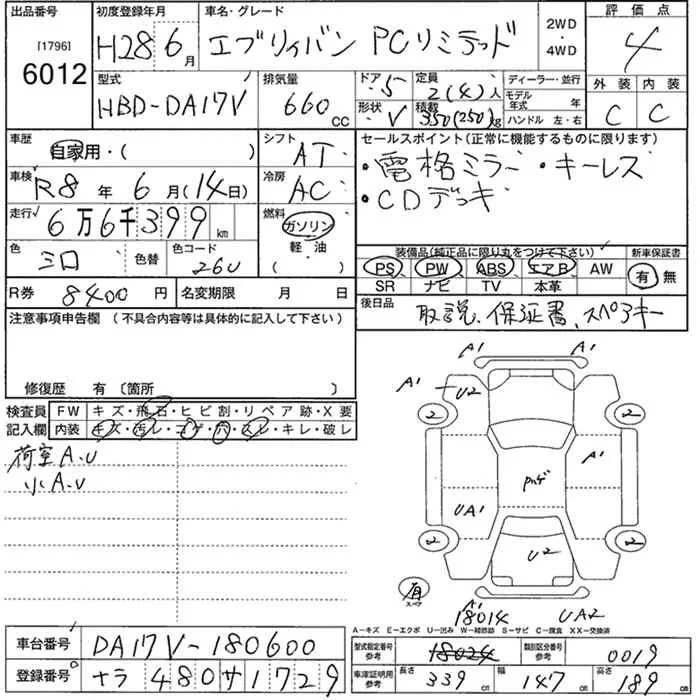 出品番号 [1796] 6012
初度登録年月 H28 6月
車名・グレード エブリィバン PCリミテッド
2WD・4WD
評価点 4
型式 HBD-DA17V
排気量 660 CC
ドア 5
形状 V
定員 2(4)人
積載 350(250)kg
ディーラー・並行
モデル年式 年
ハンドル 左・右
外装 C
内装 C
車歴 自家用・( )
シフト AT
車検 R8年 6月(14日)
冷房 AC
走行 6万6千399km
燃料 ガソリン 軽・油 ( )
色 シロ 色替
色コード 26U
R券 8400円
名変期限 月 日
セールスポイント(正常に機能するものに限ります)
・電格ミラー・キーレス
・CDデッキ
装備品(純正品に限り丸をつけて下さい)
PS PW ABS エアB AW
SR ナビ TV 本革
新車保証書 有 無
後日品 取説、保証書、スペアキー
注意事項申告欄(不具合内容等は具体的に記入して下さい)
修復歴 有〔箇所 〕
検査員記入欄
FW キズ・飛石・ヒビ割・リペア跡・X要
内装 キズ・汚レ・コゲ・穴・スレ・キレ・破レ
荷室A.U
小A.U
A1 A1
A1 U2
2 2
A1
UA1
2 2
U2
有 スペア
A1
18014
UA2
A－キズ E－エクボ U－凹み W－補修跡 S－サビ C－腐食 XX－交換済
車台番号 DA17V-180600
登録番号 ナラ 480 サ 1729
型式指定番号 参考 18024
類別区分番号 参考 0019
車庫証明用 参考 長さ 339cm 幅 147cm 高さ 189cm